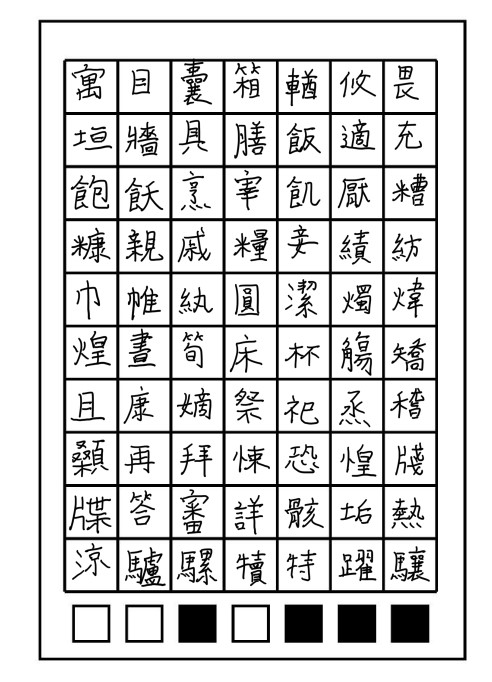 寓目囊箱輶攸畏
垣牆具膳飯適充
飽飫烹宰飢厭糟
糠親戚糧妾績紡
巾帷紈圓潔燭煒
煌晝筍床杯觴矯
且康嫡祭祀烝稽
顙再拜悚恐惶牋
牒答審詳骸垢熱
涼驢騾犢特躍驤